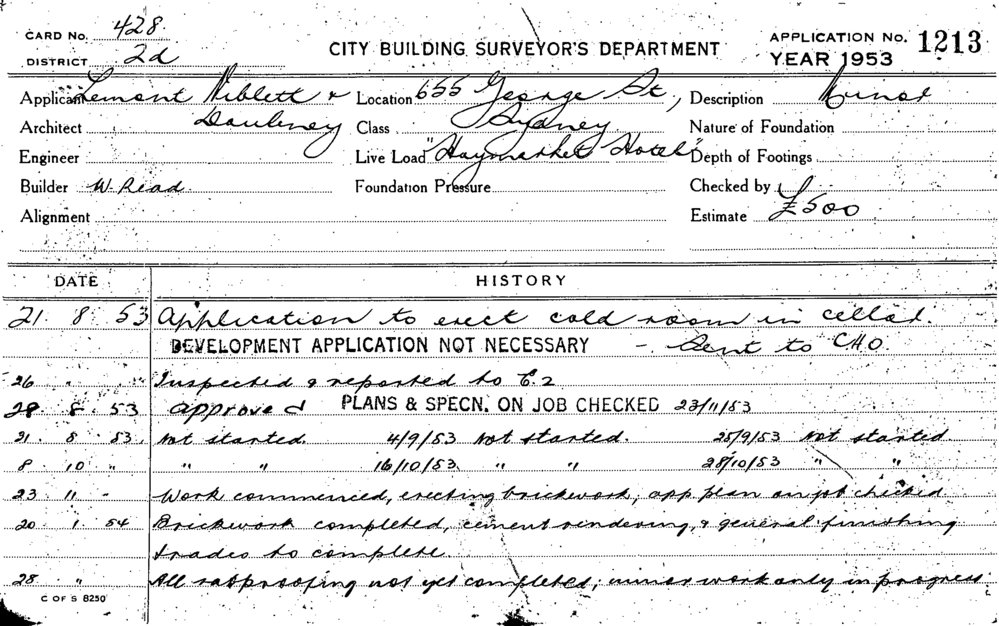 CARD No. 428
DISTRICT 2d
CITY BUILDING SURVEYOR'S DEPARTMENT
APPLICATION No. 1213
YEAR 1953
Applicant Lemont Niblett &
Architect Daubney
Engineer
Builder W. Read
Alignment
Location 655 George St,
Class Sydney
Live Load "Haymarket Hotel"
Foundation Pressure
Description Minor
Nature of Foundation
Depth of Footings
Checked by
Estimate £500
DATE HISTORY
21 . 8 . 53 Application to erect cold room in cellar.
DEVELOPMENT APPLICATION NOT NECESSARY - Sent to CHO
26 " " Inspected & reported to E.2
28 . 8 . 53 approved PLANS & SPECN. ON JOB CHECKED 23/11/53
21 . 8 . 53 Not started. 4/9/53 Not started. 25/9/53 Not started
8 . 10 " " " 16/10/53 " " 28/10/53 " "
23 . 11 - Work commenced, erecting brickwork, app plan on job checked
20 . 1 . 54 Brickwork completed, cement rendering, & general finishing
trades to complete.
28 " All ratproofing not yet completed; minor work only in progress
C OF S 8250